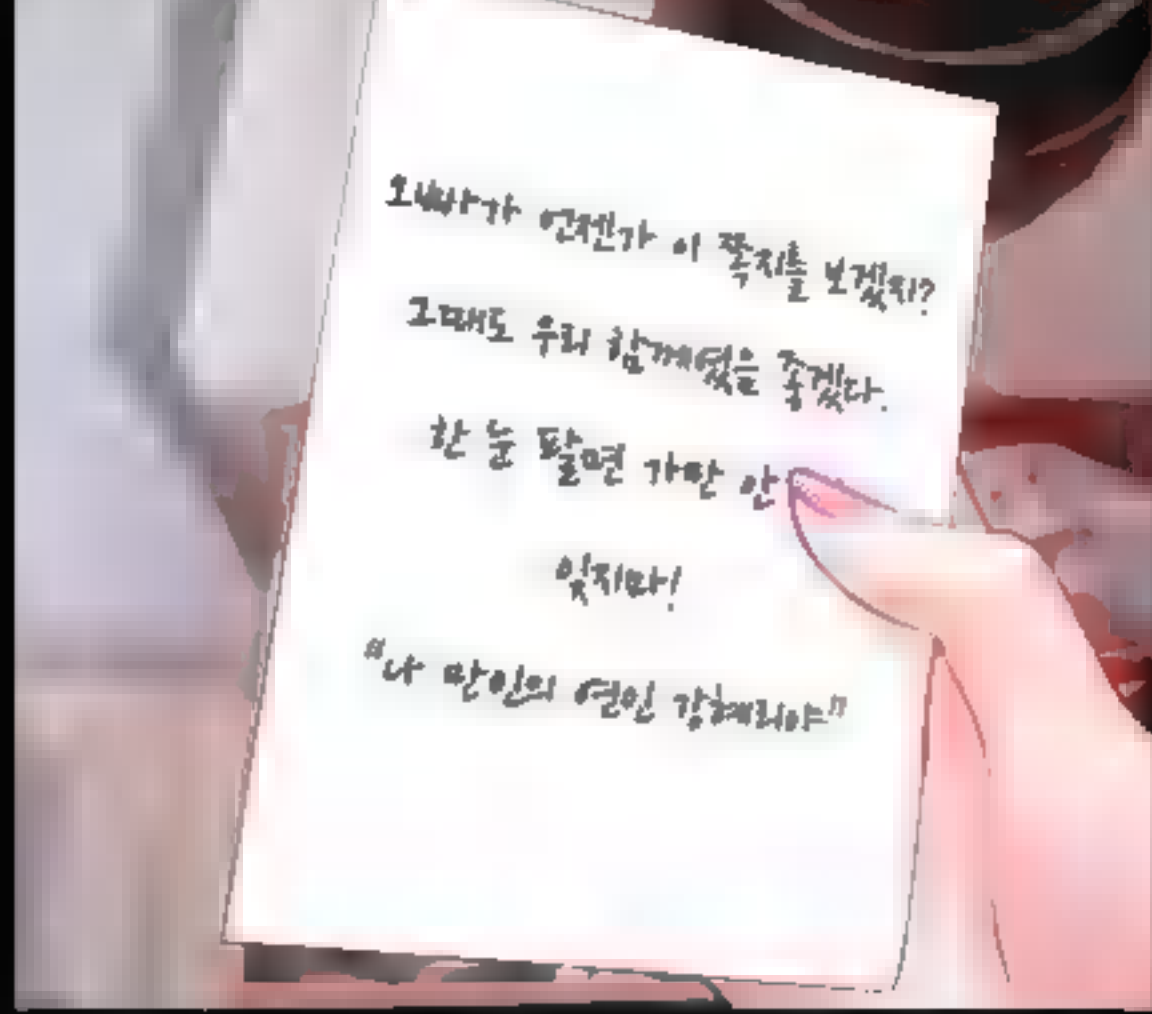 오빠가 언젠가 이 쪽지를 보겠지?
그때도 우리 함께였음 좋겠다.
한 눈 팔면 가만 안
잊지마!
"나 만인의 연인 강혜리야"